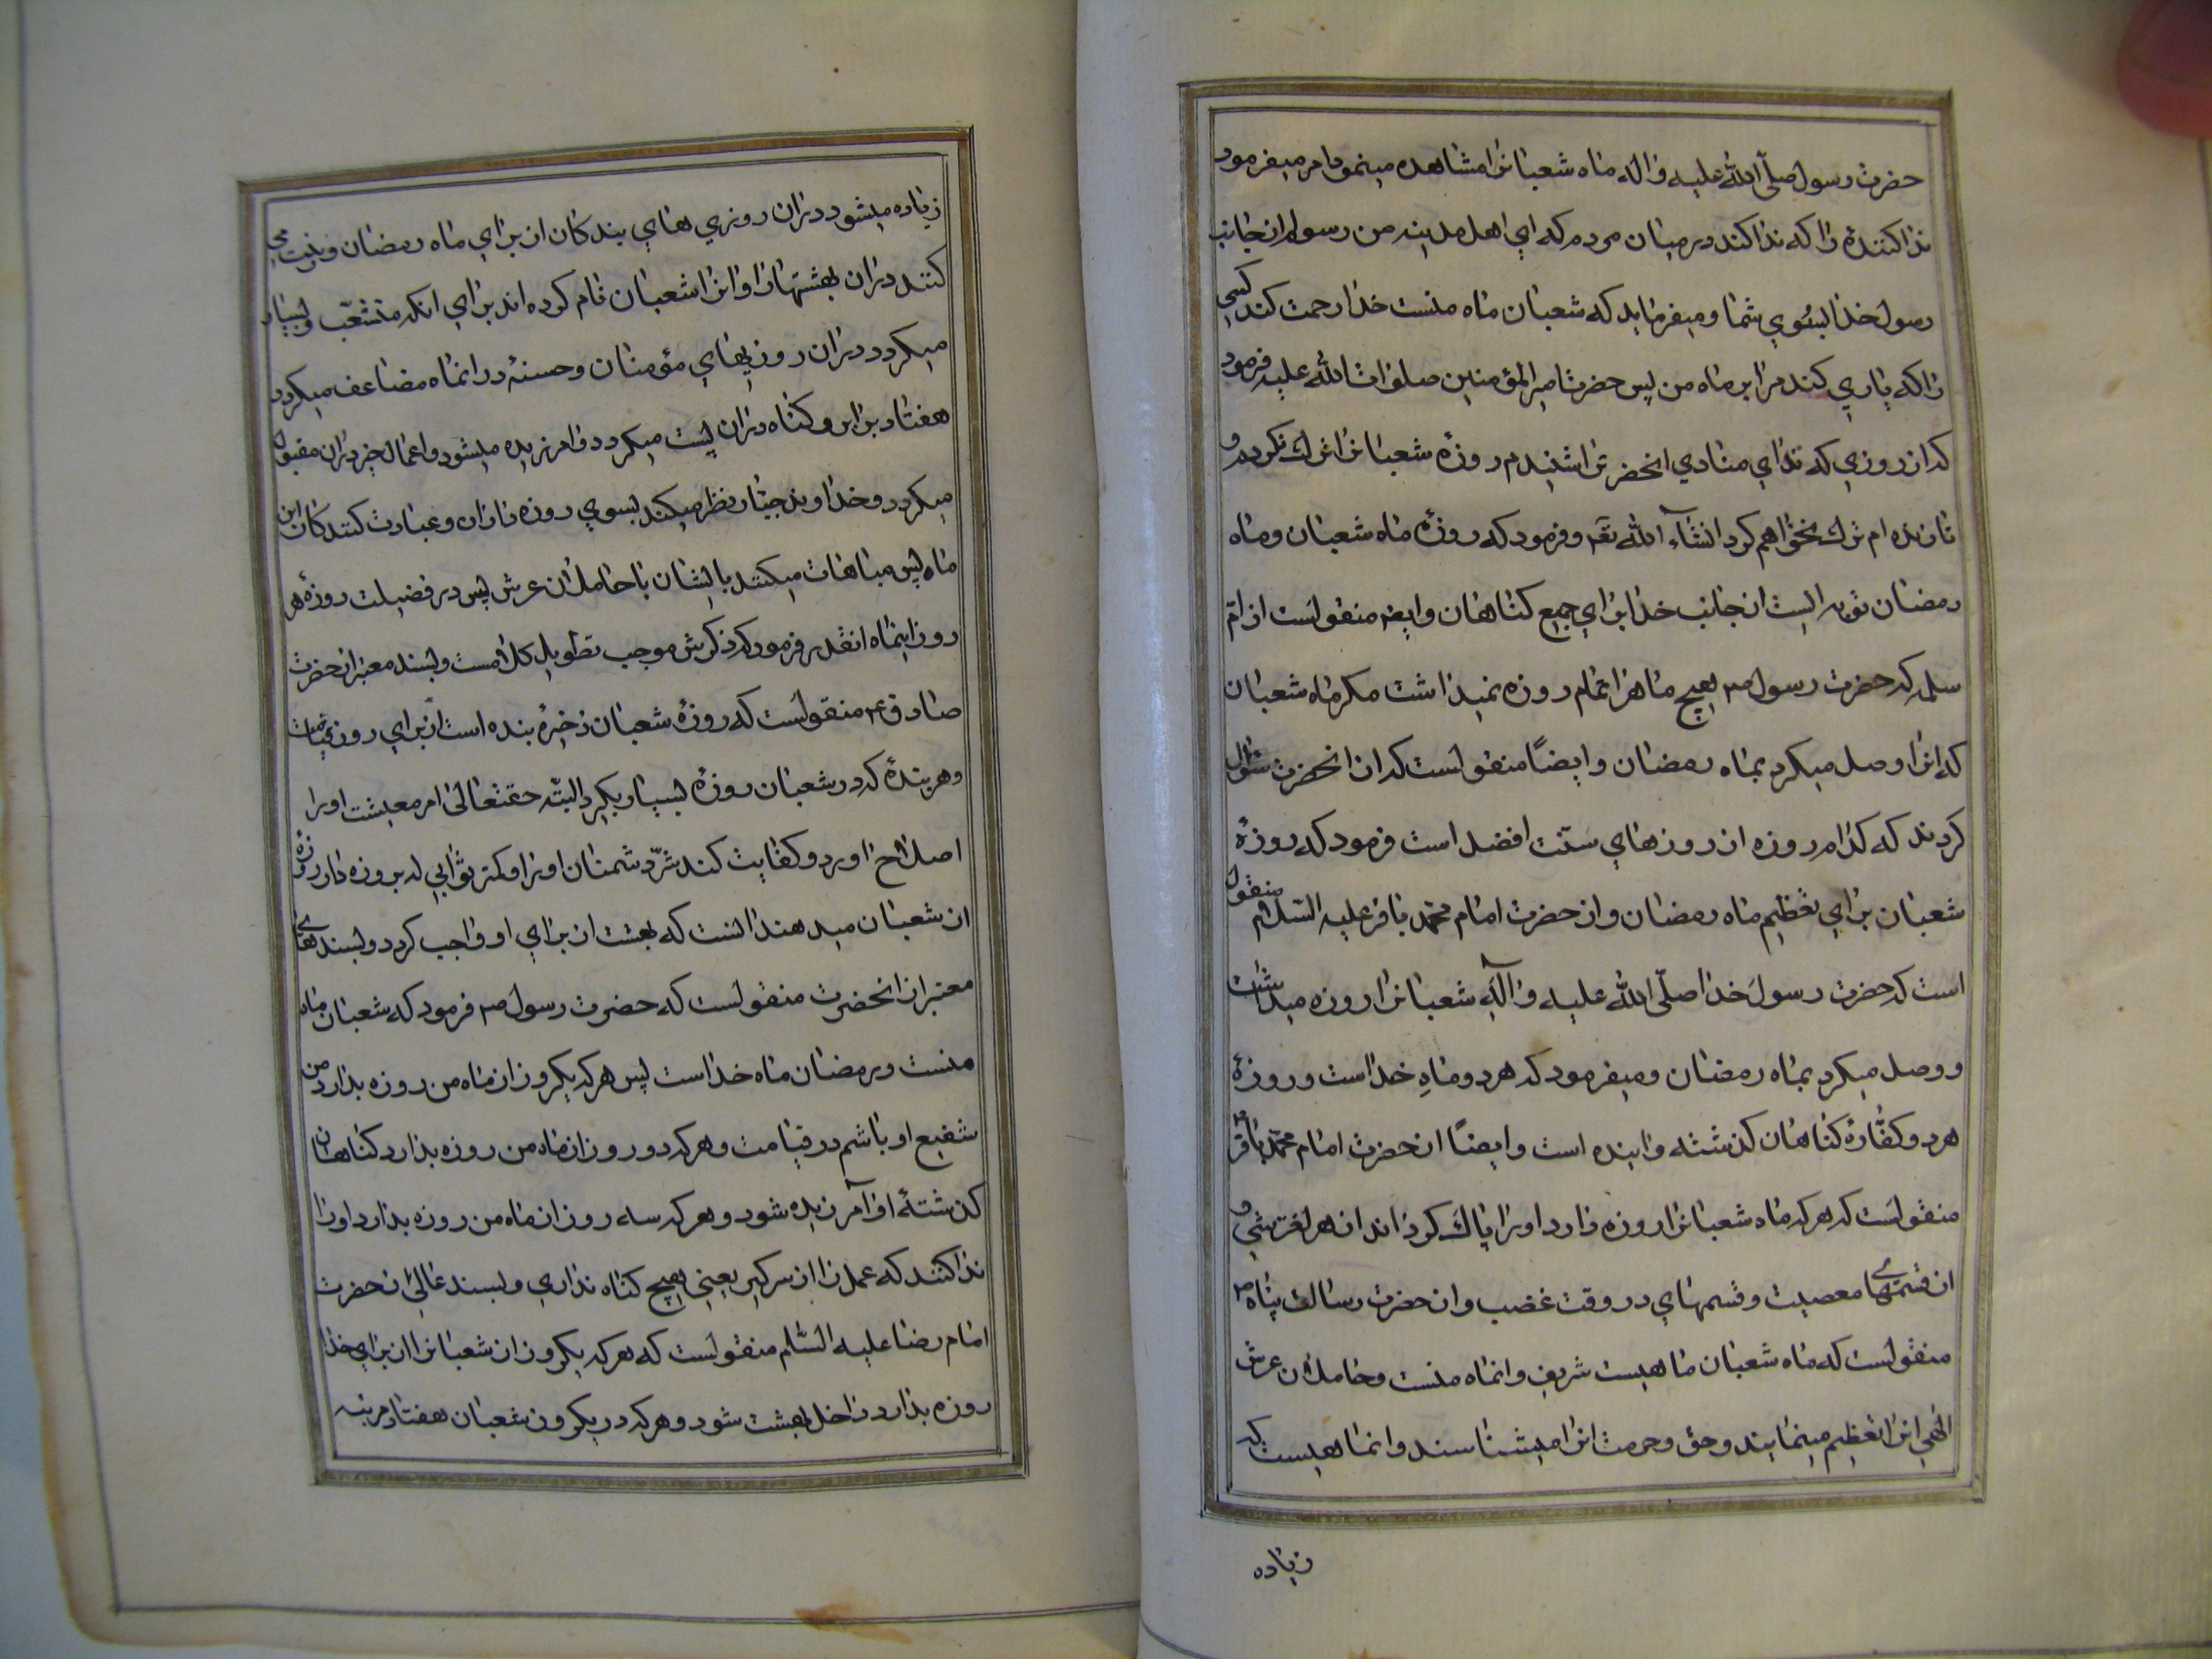 حضرت رسول صلّی الله علیه و اله ماه شعبانرا مشاهده مینمود امر میفرمود
نداکنندۀ را که ندا کند در میان مردم که ای اهل مدینه من رسولم از جانب
رسول خدا بسوی شما و میفرماید که شعبان ماه منست خدا رحمت کند کسی
را که یاری کند مرا بر ماه من پس حضرت امیر المؤمنین صلوات الله علیه فرمود
که از روزی که ندای منادی انحضرترا شنیدم روزۀ شعبانرا ترک نکردم و
تا زنده ام ترک نخواهم کرد انشآء الله تعه و فرمود که روزۀ ماه شعبان و ماه
رمضان توبه ایست از جانب خدا برای جمیع کناهان و ایضه منقولست از امّ
سلمه که حضرت رسول ص هیچ ماهرا تمام روزه نمیداشت مکر ماه شعبان
که انرا وصل میکرد بماه رمضان و ایضاً منقولست که از انحضرت سئوال
کردند که کدام روزه از روزهای سنّت افضل است فرمود که روزۀ
شعبان برای تعظیم ماه رمضان و از حضرت امام محمّد باقر علیه السّلام منقول
است که حضرت رسول خدا صلّی الله علیه و اله شعبانرا روزه میداشت
و وصل میکرد بماه رمضان و میفرمود که هر دو ماهِ خداست و روزۀ
هر دو کفّارۀ کناهان کذشته و اینده است و ایضاً از حضرت امام محمّد باقر ع
منقولست که هر که ماه شعبانرا روزه دارد اورا پاک کرداند از هر لغزشی و
از قسمهای معصیت و قسمهای در وقت غضب و از حضرت رسالت پناه ص
منقولست که ماه شعبان ماهیست شریف و انماه منست و حاملان عرش
الهی انرا تعظیم مینمایند و حق و حرمت انرا میشناسند و انماهیست که
زیاده
زیاده میشود دران روزی های بندکان از برای ماه رمضان و زینت می
کنند دران بهشتهارا و انرا شعبان نام کرده اند برای انکه منشعّب و بسیار
میکردد دران روزیهای مؤمنان و حسنۀ در انماه مضاعف میکردد
هفتاد برابر و کناه دران پست میکردد و امرزیده میشود و اعمال خیر دران مقبول
میکردد و خداوند جبّار نظر میکند بسوی روزه داران و عبادت کنندکان این
ماه پس مباهات میکند بایشان با حاملان عرش پس در فضیلت روزۀ هر
روز اینماه انقدر فرمود که ذکرش موجب تطویل کلامست و بسند معتبر از حضرت
صادق ع منقولست که روزۀ شعبان ذخیرۀ بنده است از برای روز قیامت
و هر بندۀ که در شعبان روزۀ بسیار بکیرد البتّه حقتعالی امر معیشت اورا
اصلاح اورد و کفایت کند شرّ دشمنان اورا و کمتر ثوابی که بروزه دار روزۀ
از شعبان میدهند انست که بهشت از برای او واجب کردد و بسندهای
معتبر از انحضرت منقولست که حضرت رسول ص فرمود که شعبان ماه
منست و رمضان ماه خداست پس هر که یکروز از ماه من روزه بدارد من
شفیع او باشم در قیامت و هر که دو روز از ماه من روزه بدارد کناهان
کذشتۀ او آمرزیده شود و هر که سه روز از ماه من روزه بدارد اورا
ندا کنند که عمل را از سر کیر یعنی هیچ کناه نداری و بسند عالی از حضرت
امام رضا علیه السّلم منقولست که هر که یکروز از شعبانرا از برای خدا
روزه بدارد داخل بهشت شود و هر که در یکروز شعبان هفتاد مرتبه